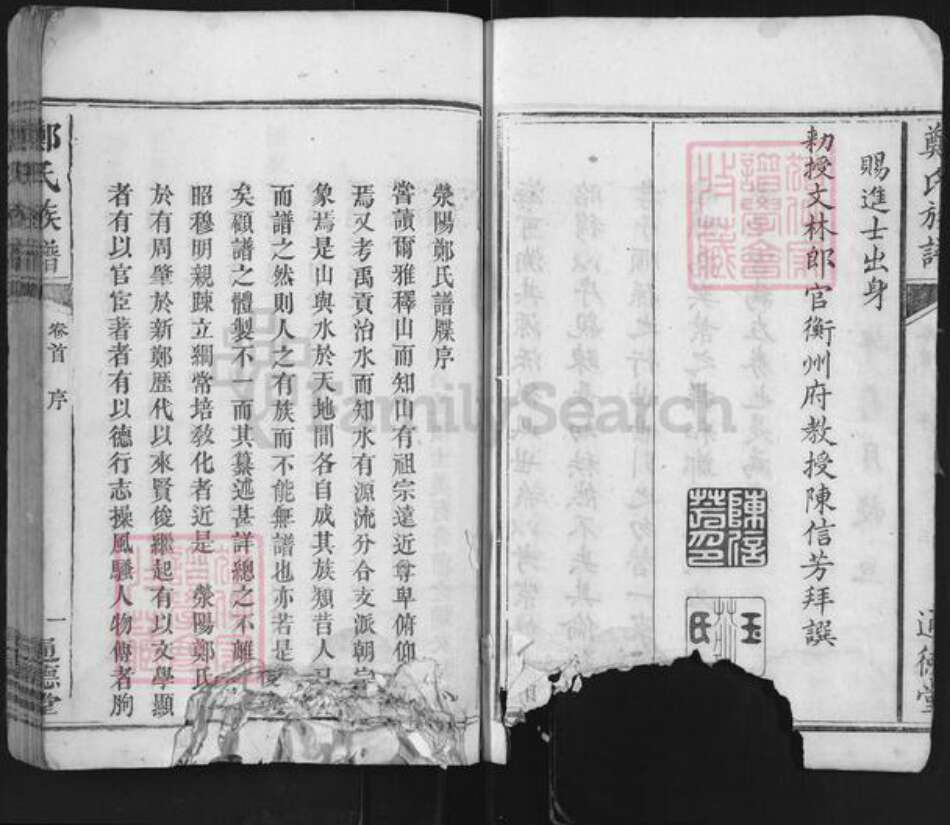 鄭氏族譜
通德堂
賜進士出身
勅授文林郎官衡州府教授陳信芳拜譔
陳信芳印
玉氏
滎陽鄭氏譜牒序
嘗讀爾雅釋山而知山有祖宗遠近尊卑俯仰
焉又考禹貢治水而知水有源流分合支派朝宗
象焉是山與水於天地間各自成其族類昔人
而譜之然則人之有族而不能無譜也亦若是
矣顧譜之體製不一而其纂述甚詳總之不離
昭穆明親踈立綱常培敎化者近是 滎陽鄭氏
於有周肇於新鄭歷代以來賢俊繼起有以文學顯
者有以官宦著者有以德行志操風騷人物傳者朐
鄭氏族譜
卷首 序
一
通德堂
FamilySearch